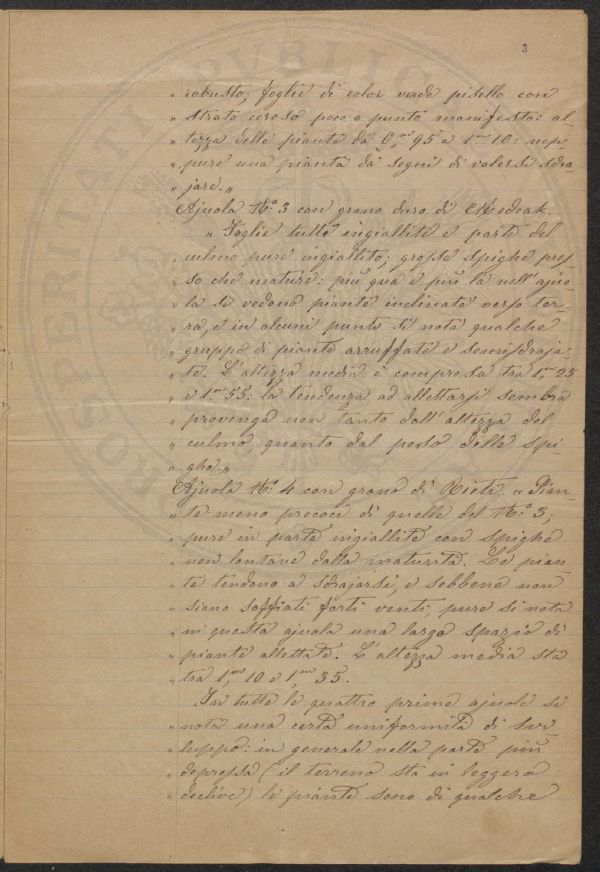 3
PVBLIC
PROSPERITATI
" robusto; foglie di color verde pisello con
" strato ceroso poco o punto manifesto: al-
" tezza delle piante da 0,m 95 a 1m 10: nep-
" pure una pianta dà segni di volersi sdra-
" jare. "
Ajuola No. 3 con grano duro di Medeak.
" Foglie tutte ingiallite e parte del
" culmo pure ingiallito; grosse spighe pres-
" so che mature: più qua e più là nell'ajuo-
" la si vedono piante inclinate verso ter-
" ra, e in alcuni punti si nota qualche
" gruppo di piante arruffate e semisdraja-
" te. L'altezza media è compresa tra 1,m 25
" e 1m 55: la tendenza ad allettarsi sembra
" provenga non tanto dall'altezza del
" culmo, quanto dal peso delle spi-
" ghe. "
Ajuola No. 4 con grano di Rieti. " Pian-
" te meno precoci di quelle del No. 3;
" pure in parte ingiallite con spighe
" non lontane dalla maturità. Le pian-
" te tendono a sdrajarsi, e sebbene non
" siano soffiati forti venti, pure si nota
" in questa ajuola una larga spazio di
" piante allettate. L'altezza media sta
" tra 1,m 10 e 1,m 35.
In tutte le quattro prime ajuole si
" nota una certa uniformità di svi-
" luppo: in generale nella parte più
" depressa (il terreno sta in leggero
" declive) le piante sono di qualche